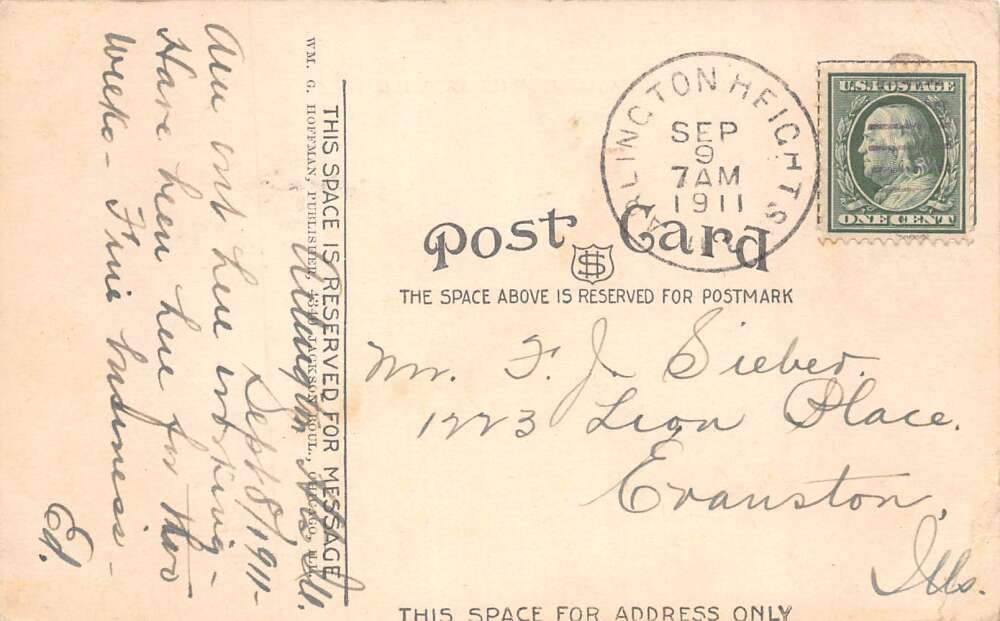 Arlington Hts. Ill.
Sept 8/1911-
Am out here working -
Have been here for two
weeks - Fine business -
Ed.
THIS SPACE IS RESERVED FOR MESSAGE
WM. G. HOFFMAN, PUBLISHER, JACKSON BOUL., CHICAGO, ILL.
ARLINGTON HEIGHTS,
SEP
9
7AM
1911
U.S. POSTAGE
ONE CENT
Post Card
THE SPACE ABOVE IS RESERVED FOR POSTMARK
Mr. F. J. Sieber.
1223 Lion Place.
Evanston,
Ills.
THIS SPACE FOR ADDRESS ONLY